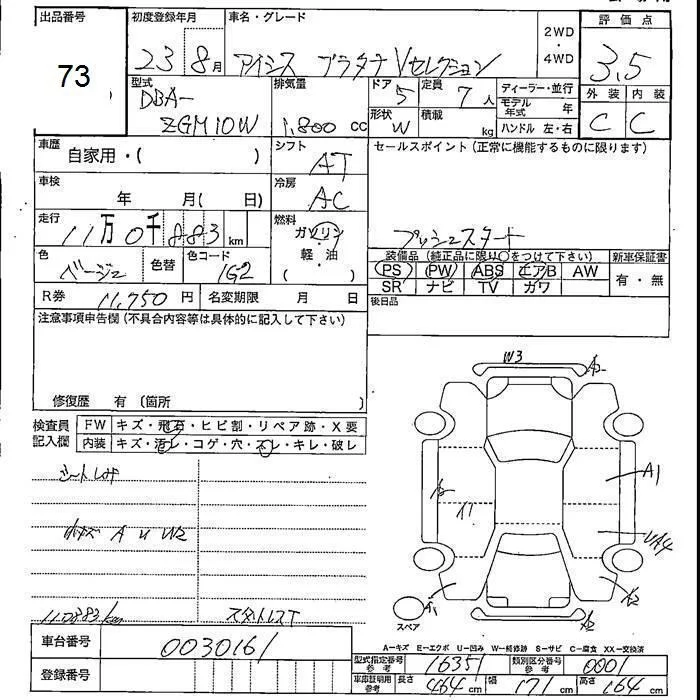 出品番号 初度登録年月 車名・グレード 評価点
73 23 8月 アイシス プラタナ Vセレクション 2WD・4WD 3.5
型式 排気量 ドア 定員 ディーラー・並行 外装 内装
DBA- 5 7人 モデル年式 年
ZGM10W 1.800 cc 形状 W 積載 kg ハンドル 左・右 C C
車歴 自家用・( ) シフト AT セールスポイント(正常に機能するものに限ります)
車検 年 月( 日) 冷房 AC
走行 11万0千883km 燃料 ガソリン・軽・油 ( ) プッシュスタート
色 ベージュ 色替 色コード 1G2 装備品(純正品に限り○をつけて下さい) 新車保証書
PS PW ABS エアB AW 有・無
R券 11,750円 名変期限 月 日 SR ナビ TV ガワ
注意事項申告欄(不具合内容等は具体的に記入して下さい) 後日品
修復歴 有(箇所 )
検査員記入欄 FW キズ・飛石・ヒビ割・リペア跡・X要
内装 キズ・汚レ・コゲ・穴・スレ・キレ・破レ
W3
A1
A
U
W2
A1
A2
110883km スタットレスT
スペア
車台番号 0030161
A−キズ E−エクボ U−凹み W−補修跡 S−サビ C−腐食 XX−交換済
型式指定番号参考 16351 類別区分番号参考 0001
登録番号 車庫証明用参考 長さ 464cm 幅 171cm 高さ 164cm